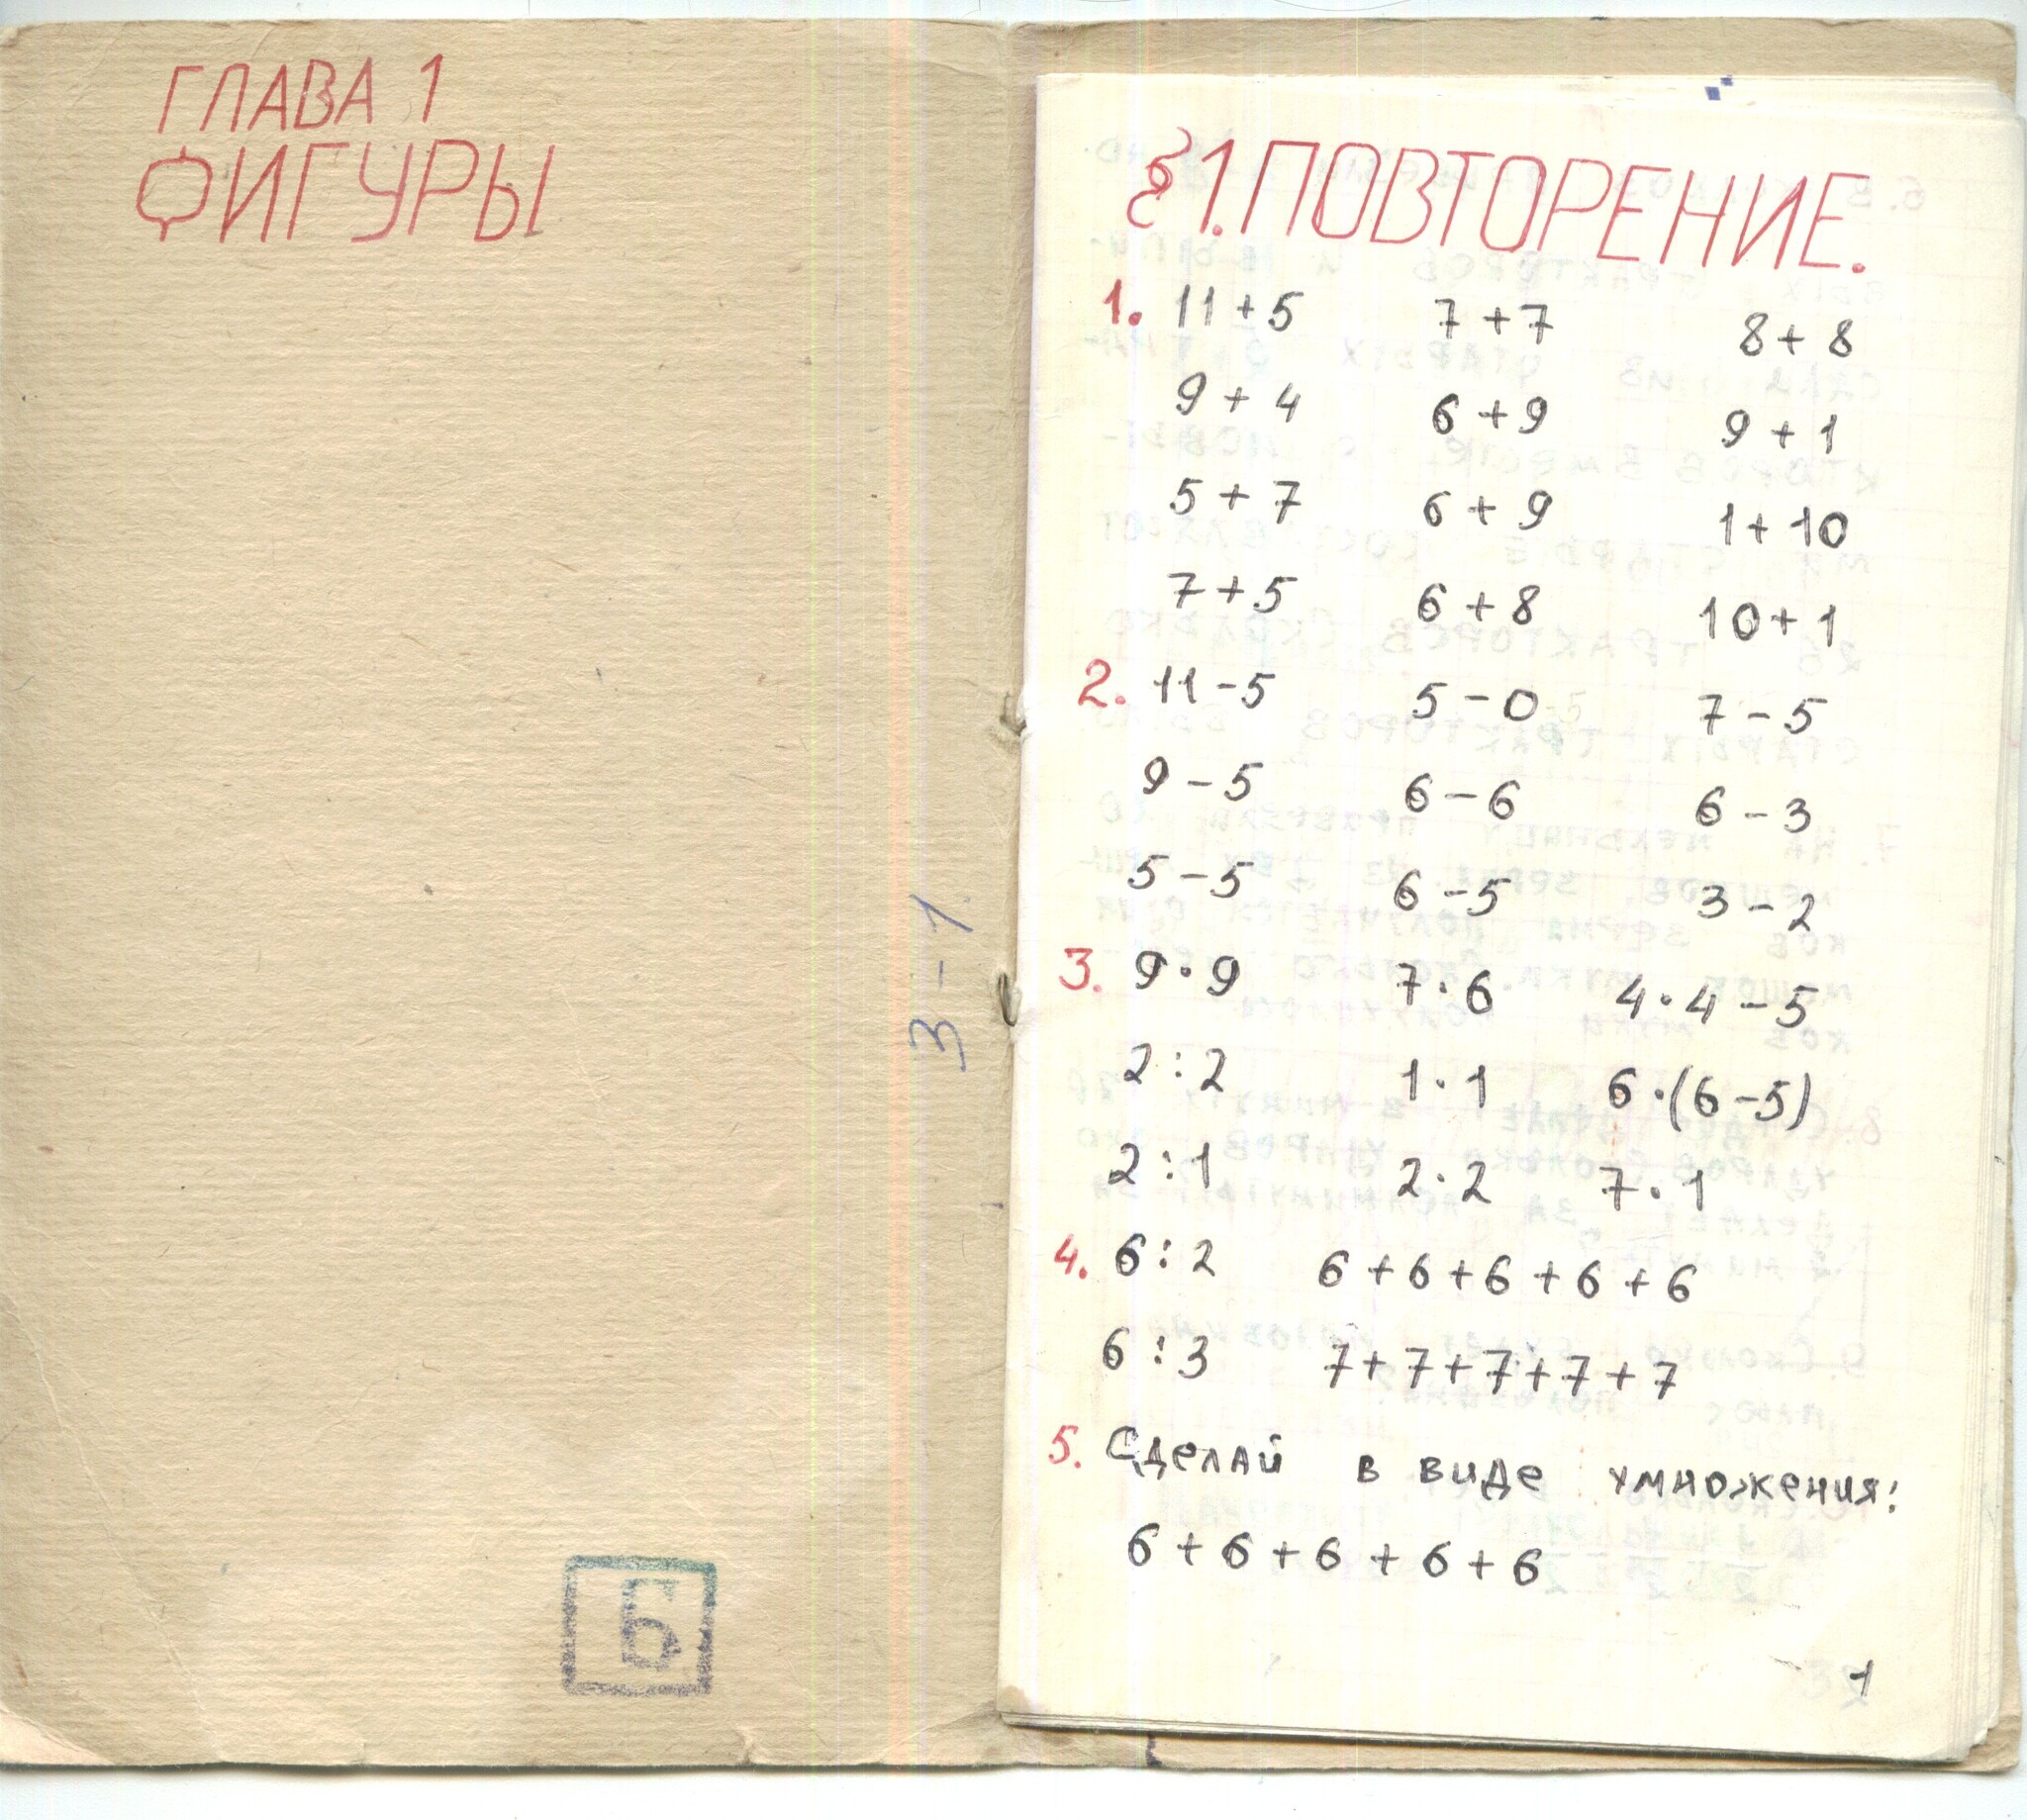 ГЛАВА 1
ФИГУРЫ
3-1.
Б
§1. ПОВТОРЕНИЕ.
1. 11+5 7+7 8+8
9+4 6+9 9+1
5+7 6+9 1+10
7+5 6+8 10+1
2. 11-5 5-0 7-5
9-5 6-6 6-3
5-5 6-5 3-2
3. 9·9 7·6 4·4-5
2:2 1·1 6·(6-5)
2:1 2·2 7·1
4. 6:2 6+6+6+6+6
6:3 7+7+7+7+7
5. Сделай в виде умножения:
6+6+6+6+6
1